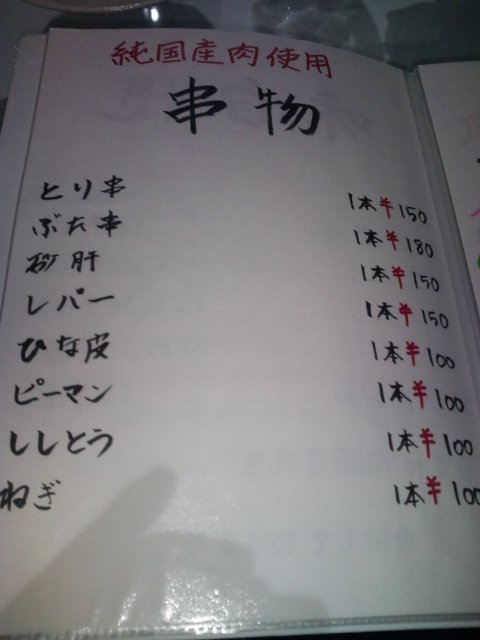 純国産肉使用
串物
とり串 1本¥150
ぶた串 1本¥180
砂肝 1本¥150
レバー 1本¥150
ひな皮 1本¥100
ピーマン 1本¥100
ししとう 1本¥100
ねぎ 1本¥100